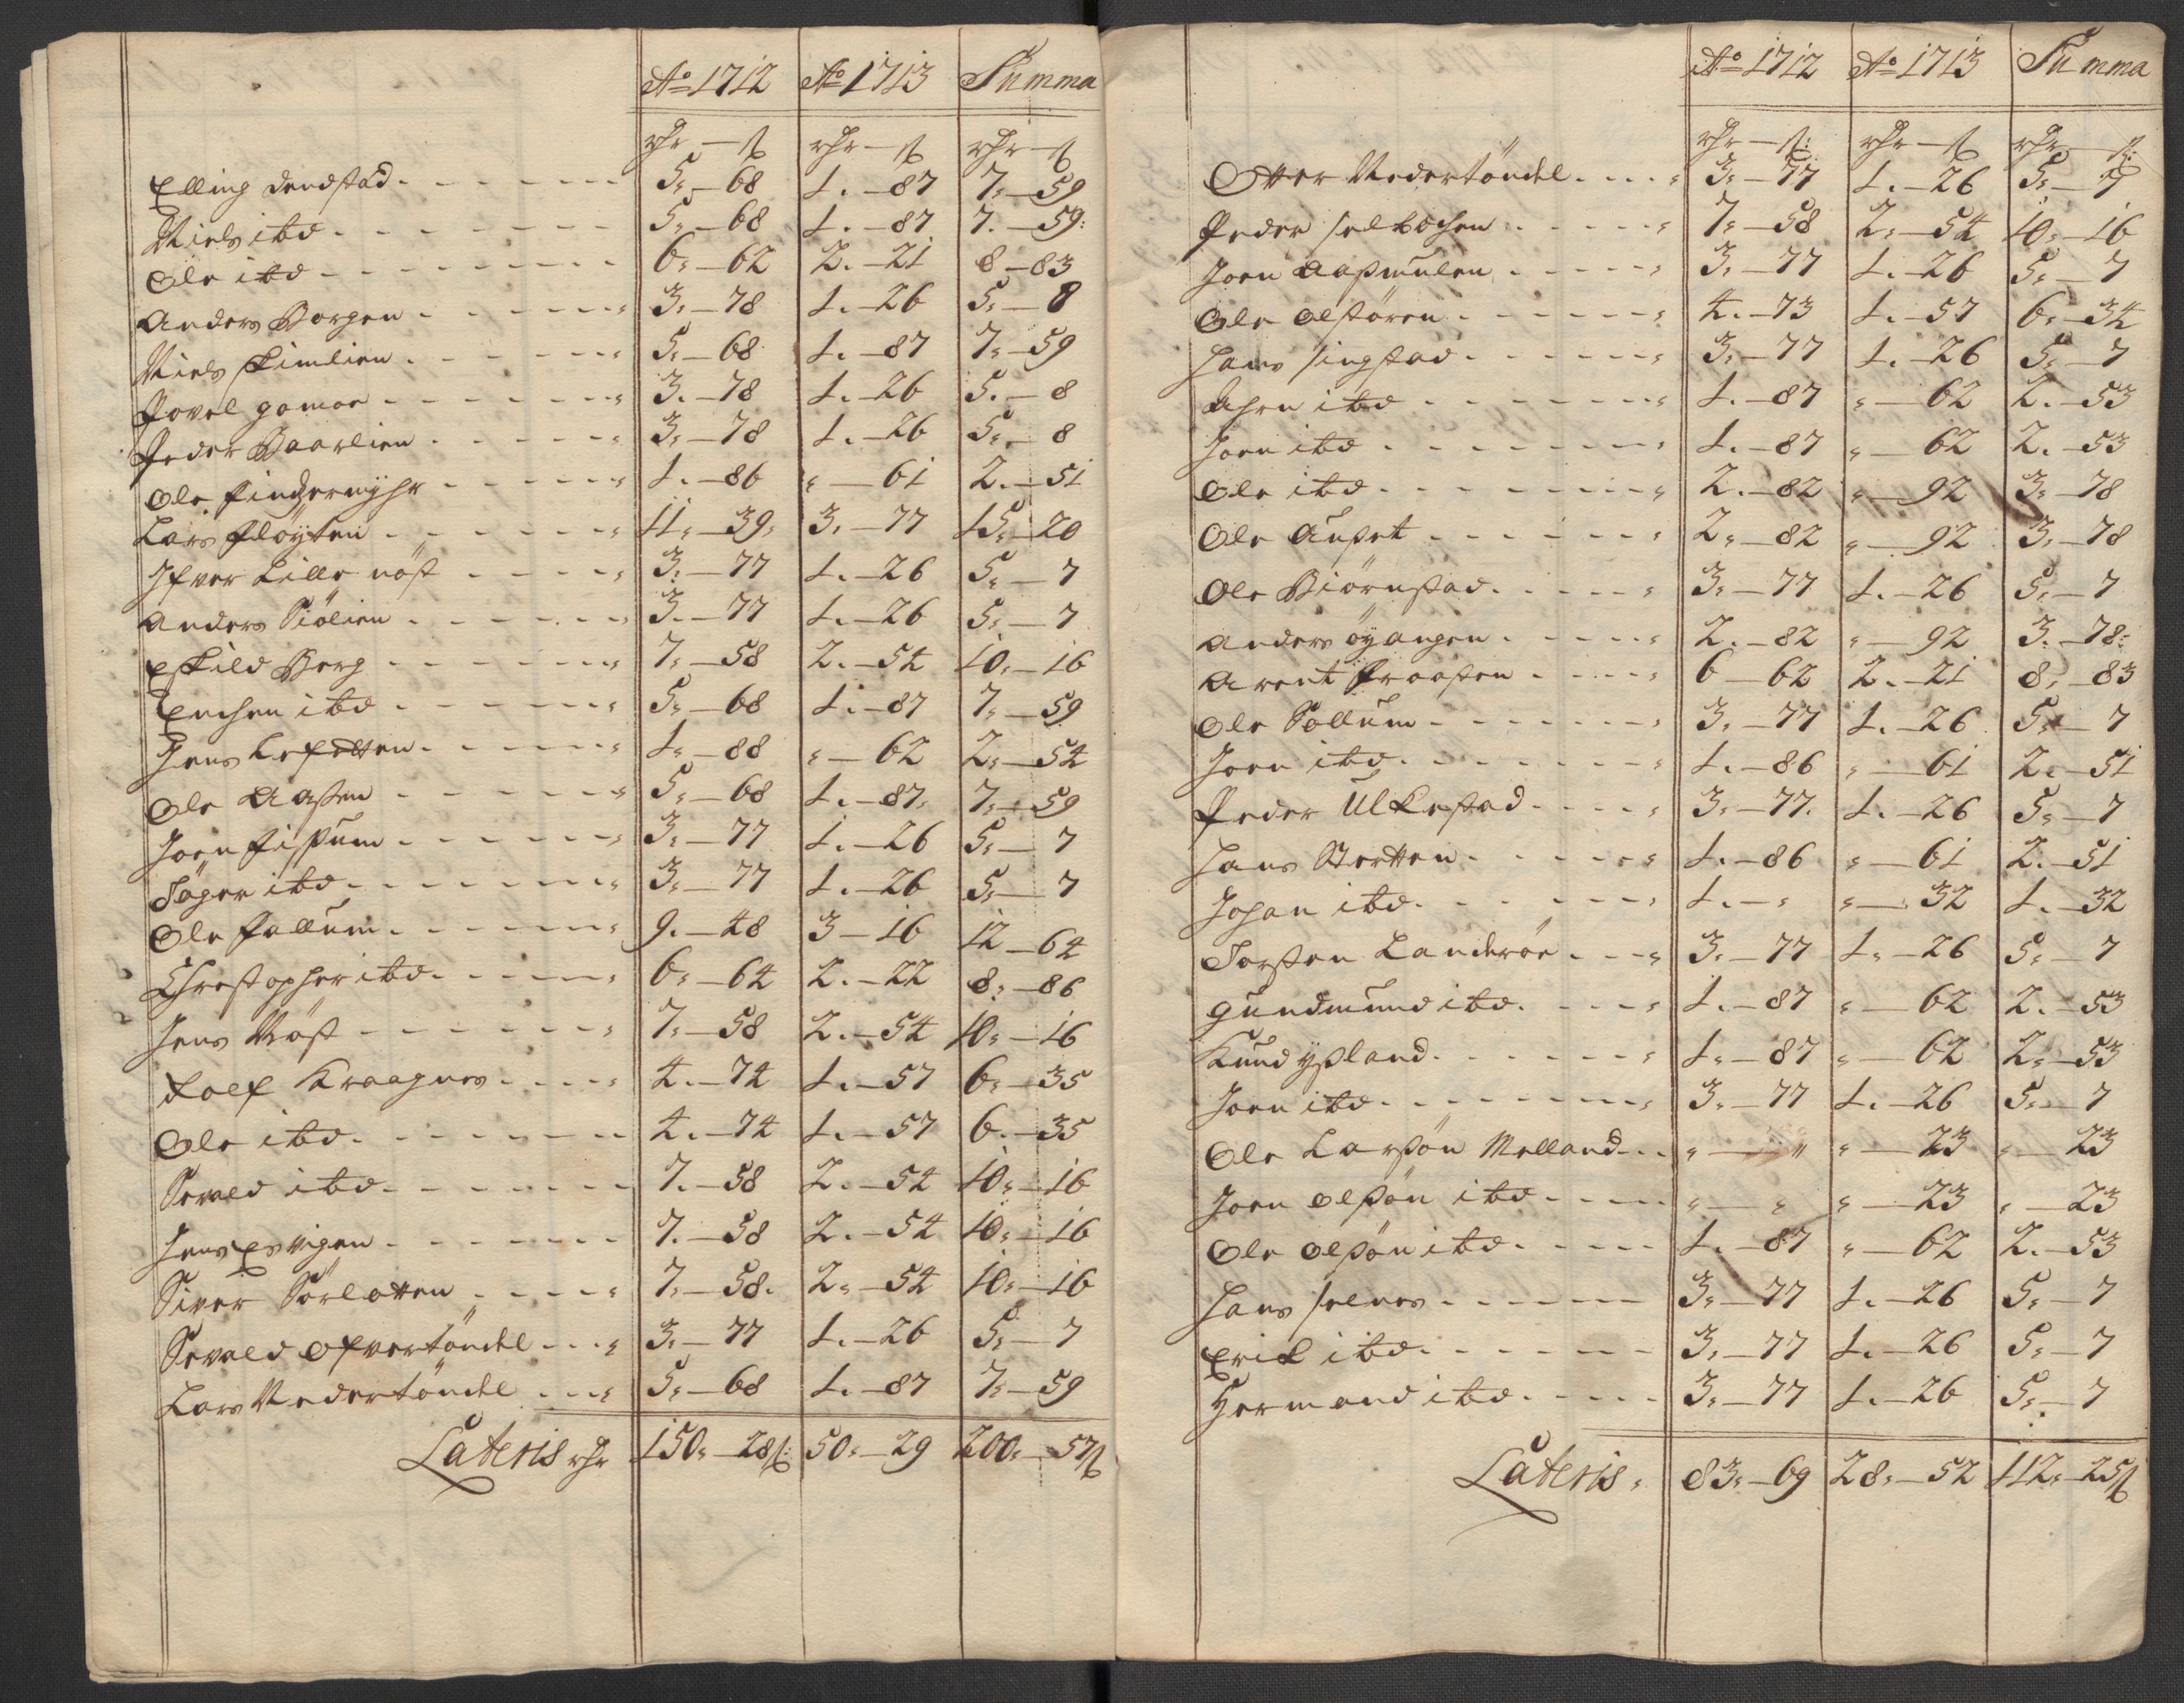 Ao 1712 Ao 1713 Summa
rhr — s rhr — s rhr — s
Elling Dendstad 5 — 68 1 — 87 7 — 59
Niels ibd 5 — 68 1 — 87 7 — 59
Ole ibd 6 — 62 2 — 21 8 — 83
Anders Borgen 3 — 78 1 — 26 5 — 8
Niels Skimlien 5 — 68 1 — 87 7 — 59
Povel gomoe 3 — 78 1 — 26 5 — 8
Peder Baarlien 3 — 78 1 — 26 5 — 8
Ole 1 — 86 " — 61 2 — 51
Lars Fløyten 11 — 39 3 — 77 15 — 20
Ifver Lille nøst 3 — 77 1 — 26 5 — 7
Anders Siölien 3 — 77 1 — 26 5 — 7
Eskild Berg 7 — 58 2 — 54 10 — 16
Enchen ibd 5 — 68 1 — 87 7 — 59
Jens 1 — 88 " — 62 2 — 54
Ole Aassen 5 — 68 1 — 87 7 — 59
Joen fissum 3 — 77 1 — 26 5 — 7
Söger ibd 3 — 77 1 — 26 5 — 7
Ole fallum 9 — 48 3 — 16 12 — 64
Christopher ibd 6 — 64 2 — 22 8 — 86
Jens Nöst 7 — 58 2 — 54 10 — 16
Rolf Kraagnes 4 — 74 1 — 57 6 — 35
Ole ibd 4 — 74 1 — 57 6 — 35
Sevald ibd 7 — 58 2 — 54 10 — 16
Jens Esvigen 7 — 58 2 — 54 10 — 16
Siver Sörlotten 7 — 58 2 — 54 10 — 16
Sevald Ofvertöndel 3 — 77 1 — 26 5 — 7
Lars Nedertöndel 5 — 68 1 — 87 7 — 59
Lateris rhr 150 — 28 s 50 — 29 200 — 57 s
Ao 1712 Ao 1713 Summa
rhr — s rhr — s rhr — s
Otter Nedertöndel 3 — 77 1 — 26 5 — 7
Peder selbochen 7 — 58 2 — 54 10 — 16
Joen Aasmulen 3 — 77 1 — 26 5 — 7
Ole olstören 4 — 73 1 — 57 6 — 34
Hans singstad 3 — 77 1 — 26 5 — 7
ibd 1 — 87 " — 62 2 — 53
Joen ibd 1 — 87 " — 62 2 — 53
Ole ibd 2 — 82 " — 92 3 — 78
Ole Auset 2 — 82 " — 92 3 — 78
Ole Biörnstad 3 — 77 1 — 26 5 — 7
Anders öyangen 2 — 82 " — 92 3 — 78
Arent Fraasten 6 — 62 2 — 21 8 — 83
Ole Sollum 3 — 77 1 — 26 5 — 7
Joen ibd 1 — 86 " — 61 2 — 51
Peder Ulkestad 3 — 77 1 — 26 5 — 7
Hans Stortten 1 — 86 " — 61 2 — 51
Johan ibd 1 — " " — 32 1 — 32
Torsten Landröe 3 — 77 1 — 26 5 — 7
Gundmund ibd 1 — 87 " — 62 2 — 53
Knud ysland 1 — 87 " — 62 2 — 53
Joen ibd 3 — 77 1 — 26 5 — 7
Ole Larssön Melland " — " " — 23 " — 23
Joen olssön ibd " — " " — 23 " — 23
Ole olssön ibd 1 — 87 " — 62 2 — 53
Hans selnes 3 — 77 1 — 26 5 — 7
Erik ibd 3 — 77 1 — 26 5 — 7
Hermand ibd 3 — 77 1 — 26 5 — 7
Lateris 83 — 69 28 — 52 112 — 25 s